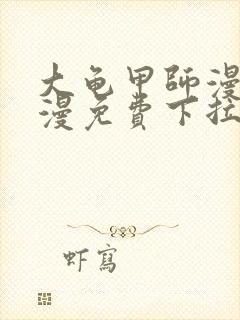 大龟甲師漫
漫免費下拉
虾寫